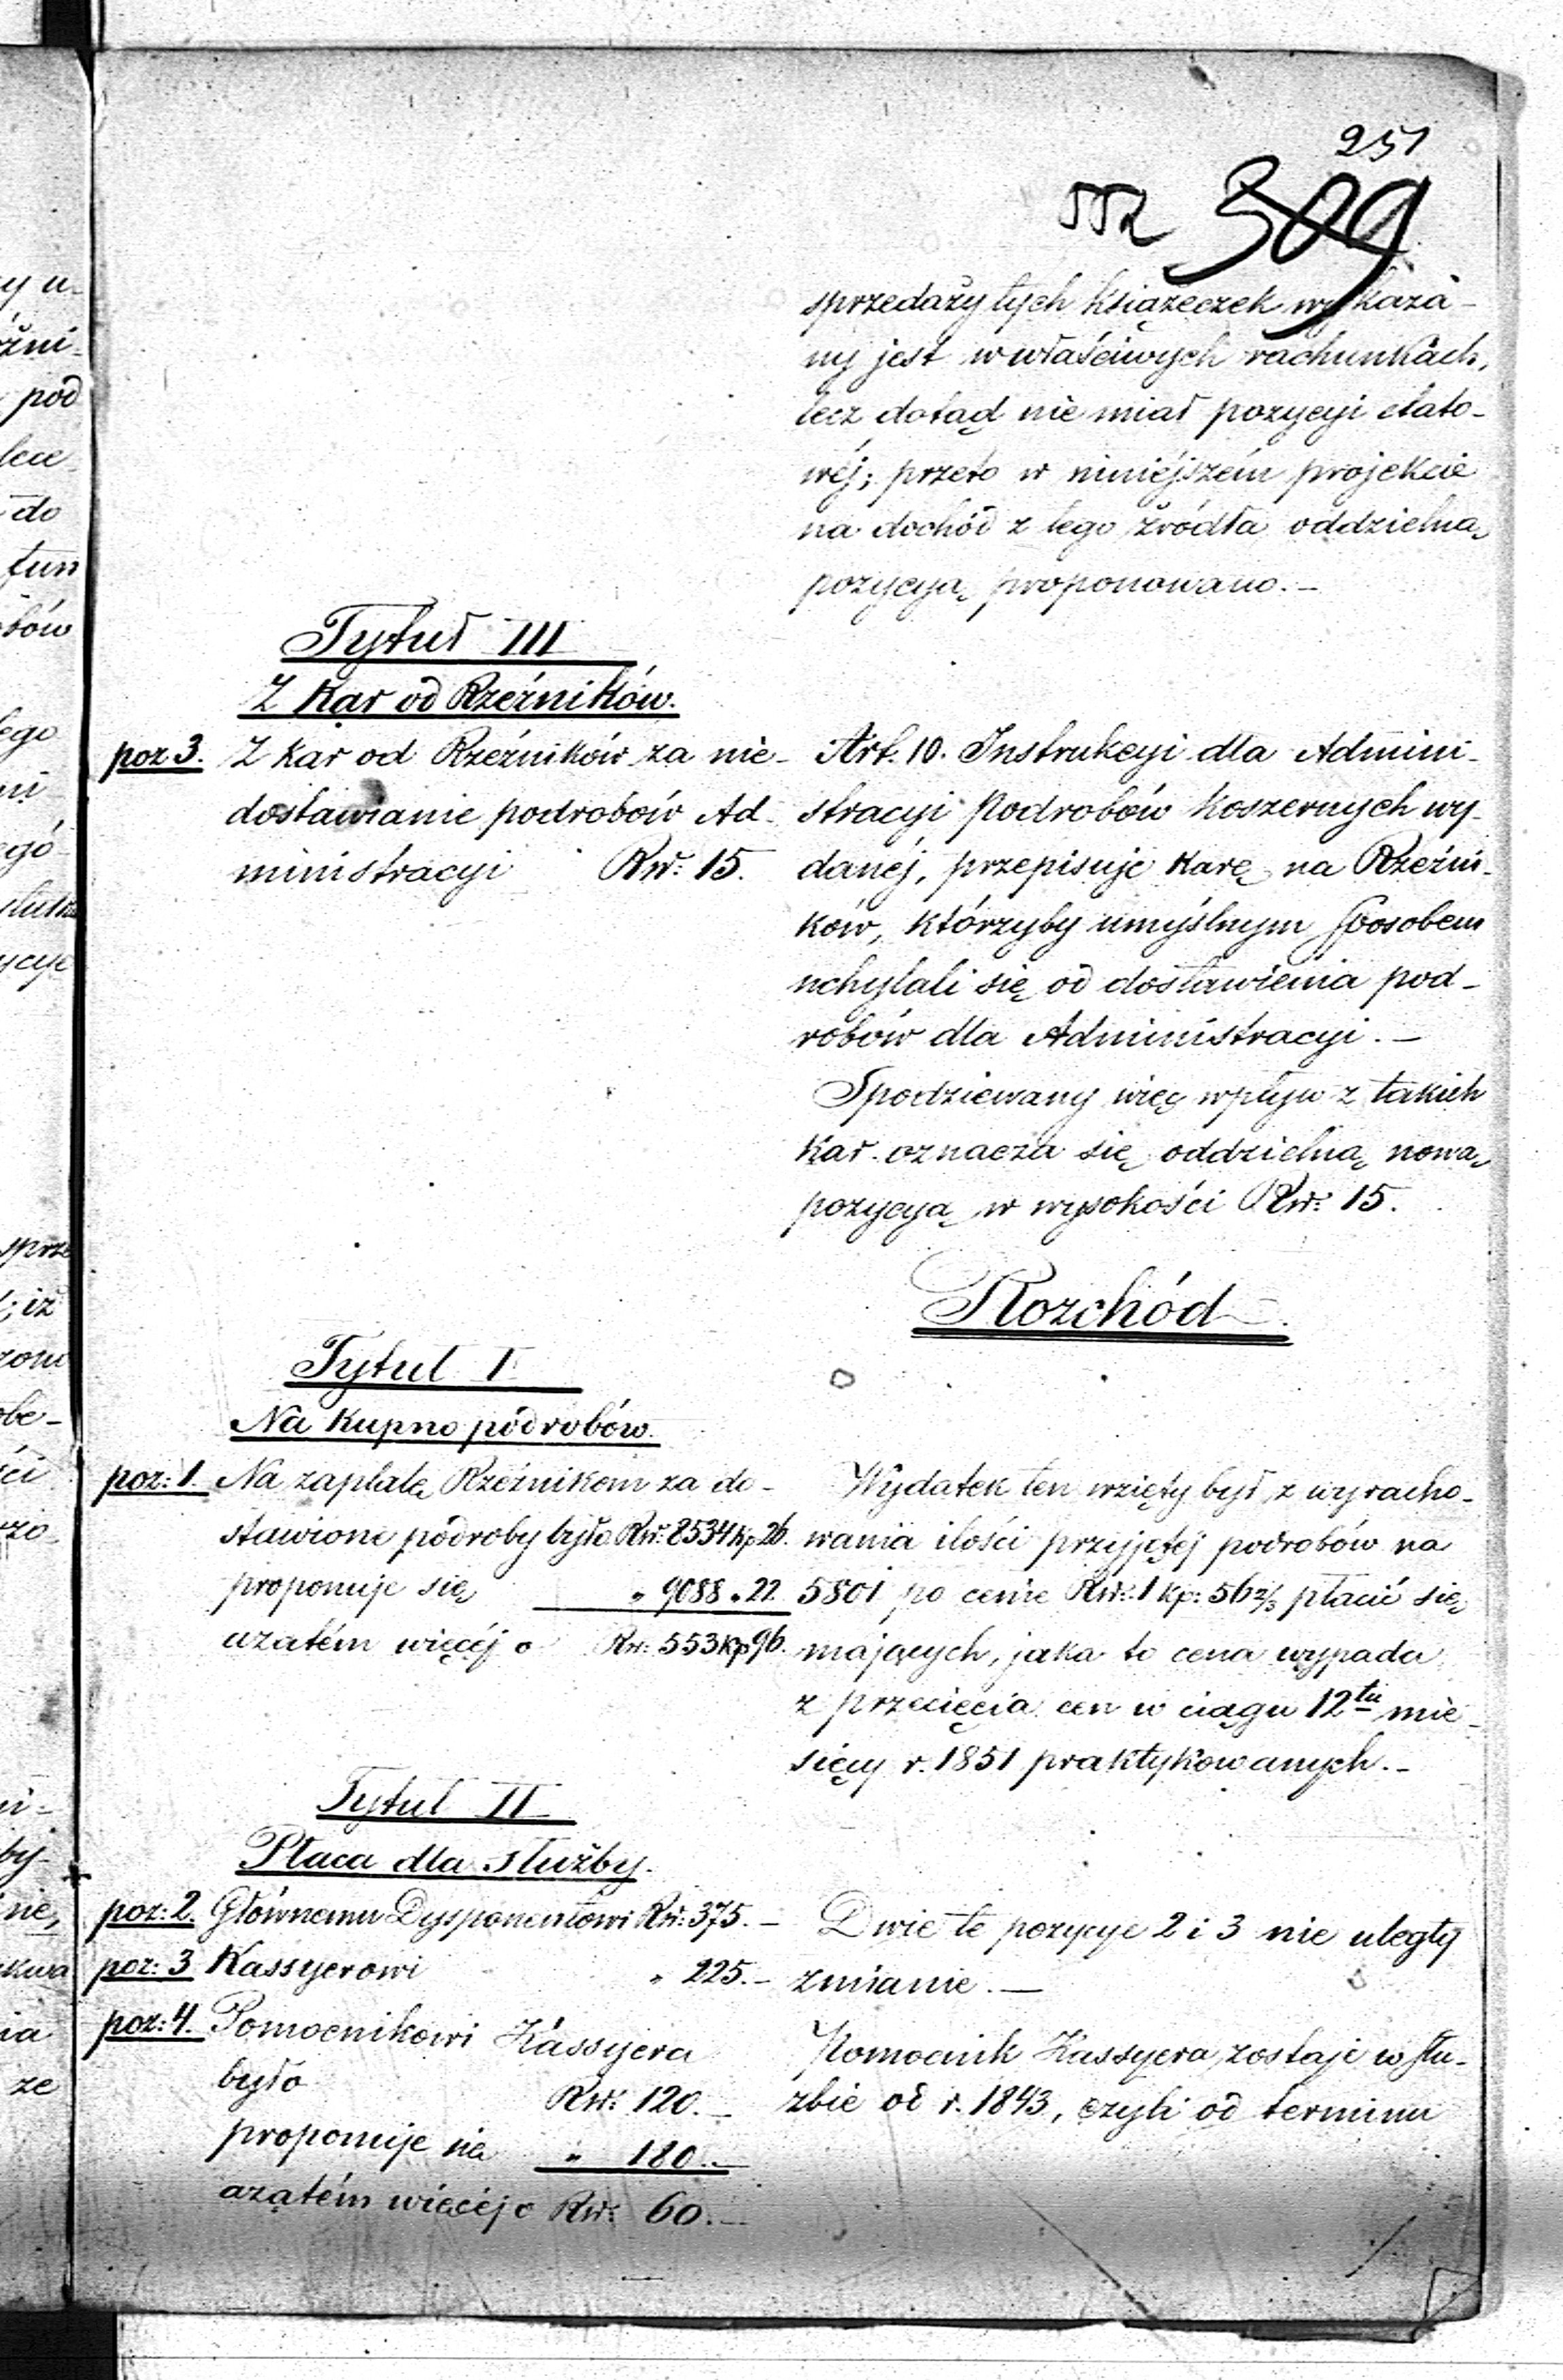 251
552 309
sprzedaży tych książeczek wykaza-
ny jest w właściwych rachunkach,
lecz dotąd nie miał pozycyi etato-
wéj; przeto w niniéjszém projekcie
na dochód z tego źródła oddzielną
pozycyą proponowano.-
Tytuł III
Z Kar od Rzeźników.
poz 3. Z kar od Rzeźników za nie-
dostawianie podrobów Ad-
ministracyi Rsr: 15.
Art. 10. Instrukcyi dla Admini-
stracyi Podrobów Koszernych wy-
danéj, przepisuje karę na Rzeźni-
ków, którzyby umyślnym sposobem
uchylali się od dostawienia pod-
robów dla Administracyi.-
Spodziewany więc wpływ z takich
kar oznacza się oddzielną nową
pozycyą w wysokości Rsr: 15.
Rozchód.
Tytuł I
Na Kupno podrobów.
poz: 1. Na zapłatę Rzeźnikom za do-
stawione podroby było Rsr: 8534 kp 26.
proponuje się " 9088 " 22.
azatém więcéj o Rsr: 553 kp 96.
Wydatek ten wzięty był z wyracho-
wania ilości przyjętéj podrobów na
5801 po cenie Rsr: 1 kp: 56 2/3 płacić się
mających, jaka to cena wypada
z przecięcia cen w ciągu 12tu mie-
sięcy r. 1851 praktykowanych.-
Tytuł II
Płaca dla służby.
poz: 2. Głównemu Dysponentowi Rsr: 375.-
poz: 3 Kassyerowi " 225.-
poz: 4. Pomocnikowi Kassyera
było Rsr: 120.-
proponuje się " 180.-
azatém więcéj o Rsr: 60.-
Dwie te pozycye 2 i 3 nie uległy
zmianie.-
Pomocnik Kassyera zostaje w słu-
żbie od r. 1843, czyli od terminu